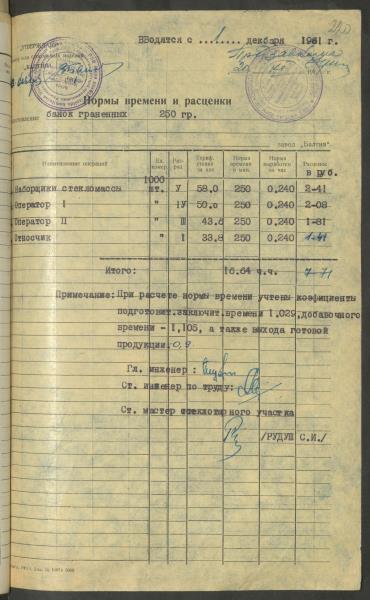 Вводятся с 1 декабря 1961 г.
„УТВЕРЖДАЮ"
Нормы времени и расценки
банок граненных 250 гр.
завод „Балтия"
Наименование операций
Ед. измер.
Раз-ряд
Тариф. ставка за час
Норма времени в мин.
Норма выработки за час
Расценок в руб.
1000
Наборщики стекломассы шт. У 58,0 250 0,240 2-41
Оператор I " 1У 50,0 250 0,240 2-08
Оператор П " Ш 43,6 250 0,240 1-81
Относчик " I 33,8 250 0,240 1-41
Итого: 16.64 ч.ч. 7-71
Примечание: При расчете нормы времени учтены коэфициенты
подготовит.заключит.времени 1.029,добавочного
времени - 1,105, а также выхода готовой
продукции. 0,9
Гл. инженер :
Ст. инженер по труду:
Ст. мастер стеклотарного участка
/РУДУШ С.И./